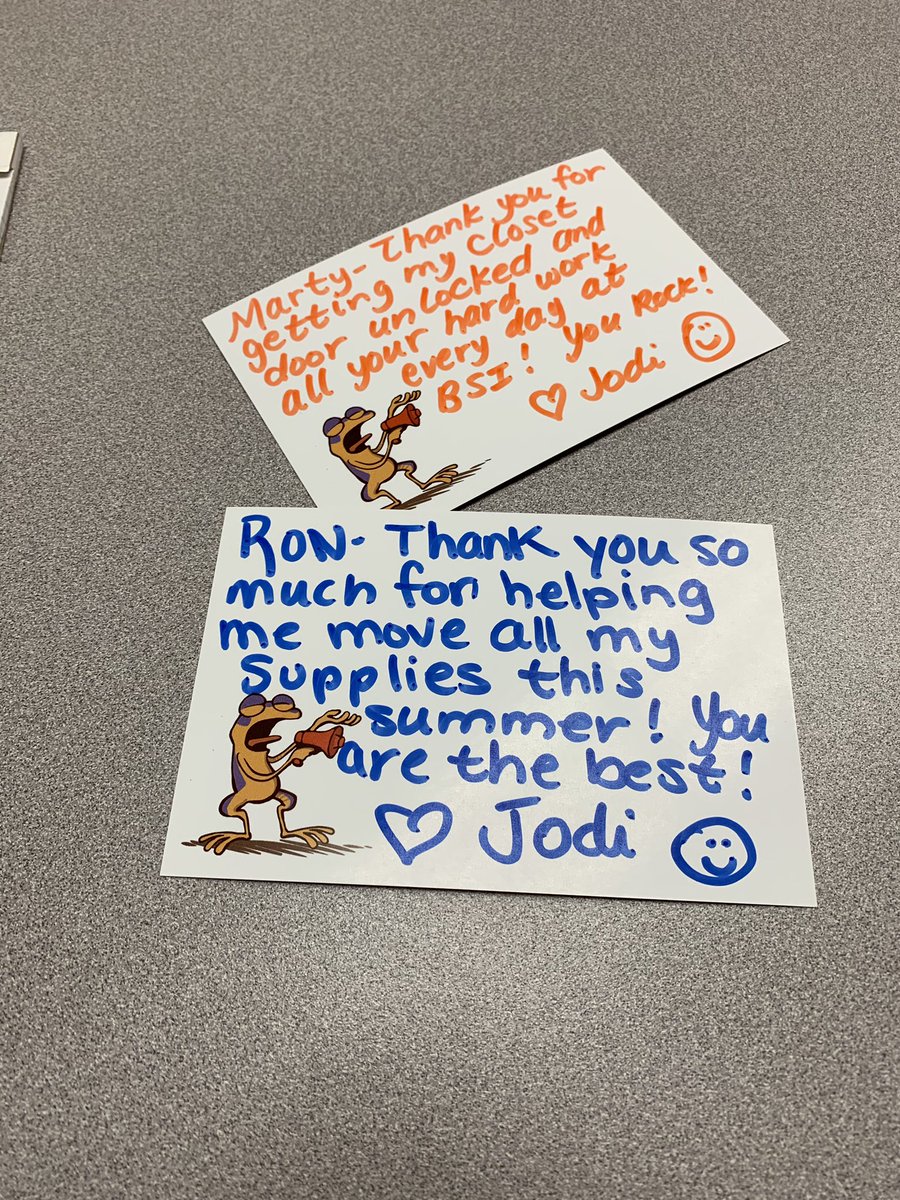 Marty- Thank you for
getting my closet
door unlocked and
all your hard work
every day at
BSI! You Rock!
♡ Jodi ☺
RON- Thank you so
much for helping
me move all my
Supplies this
summer! You
are the best!
♡ Jodi ☺